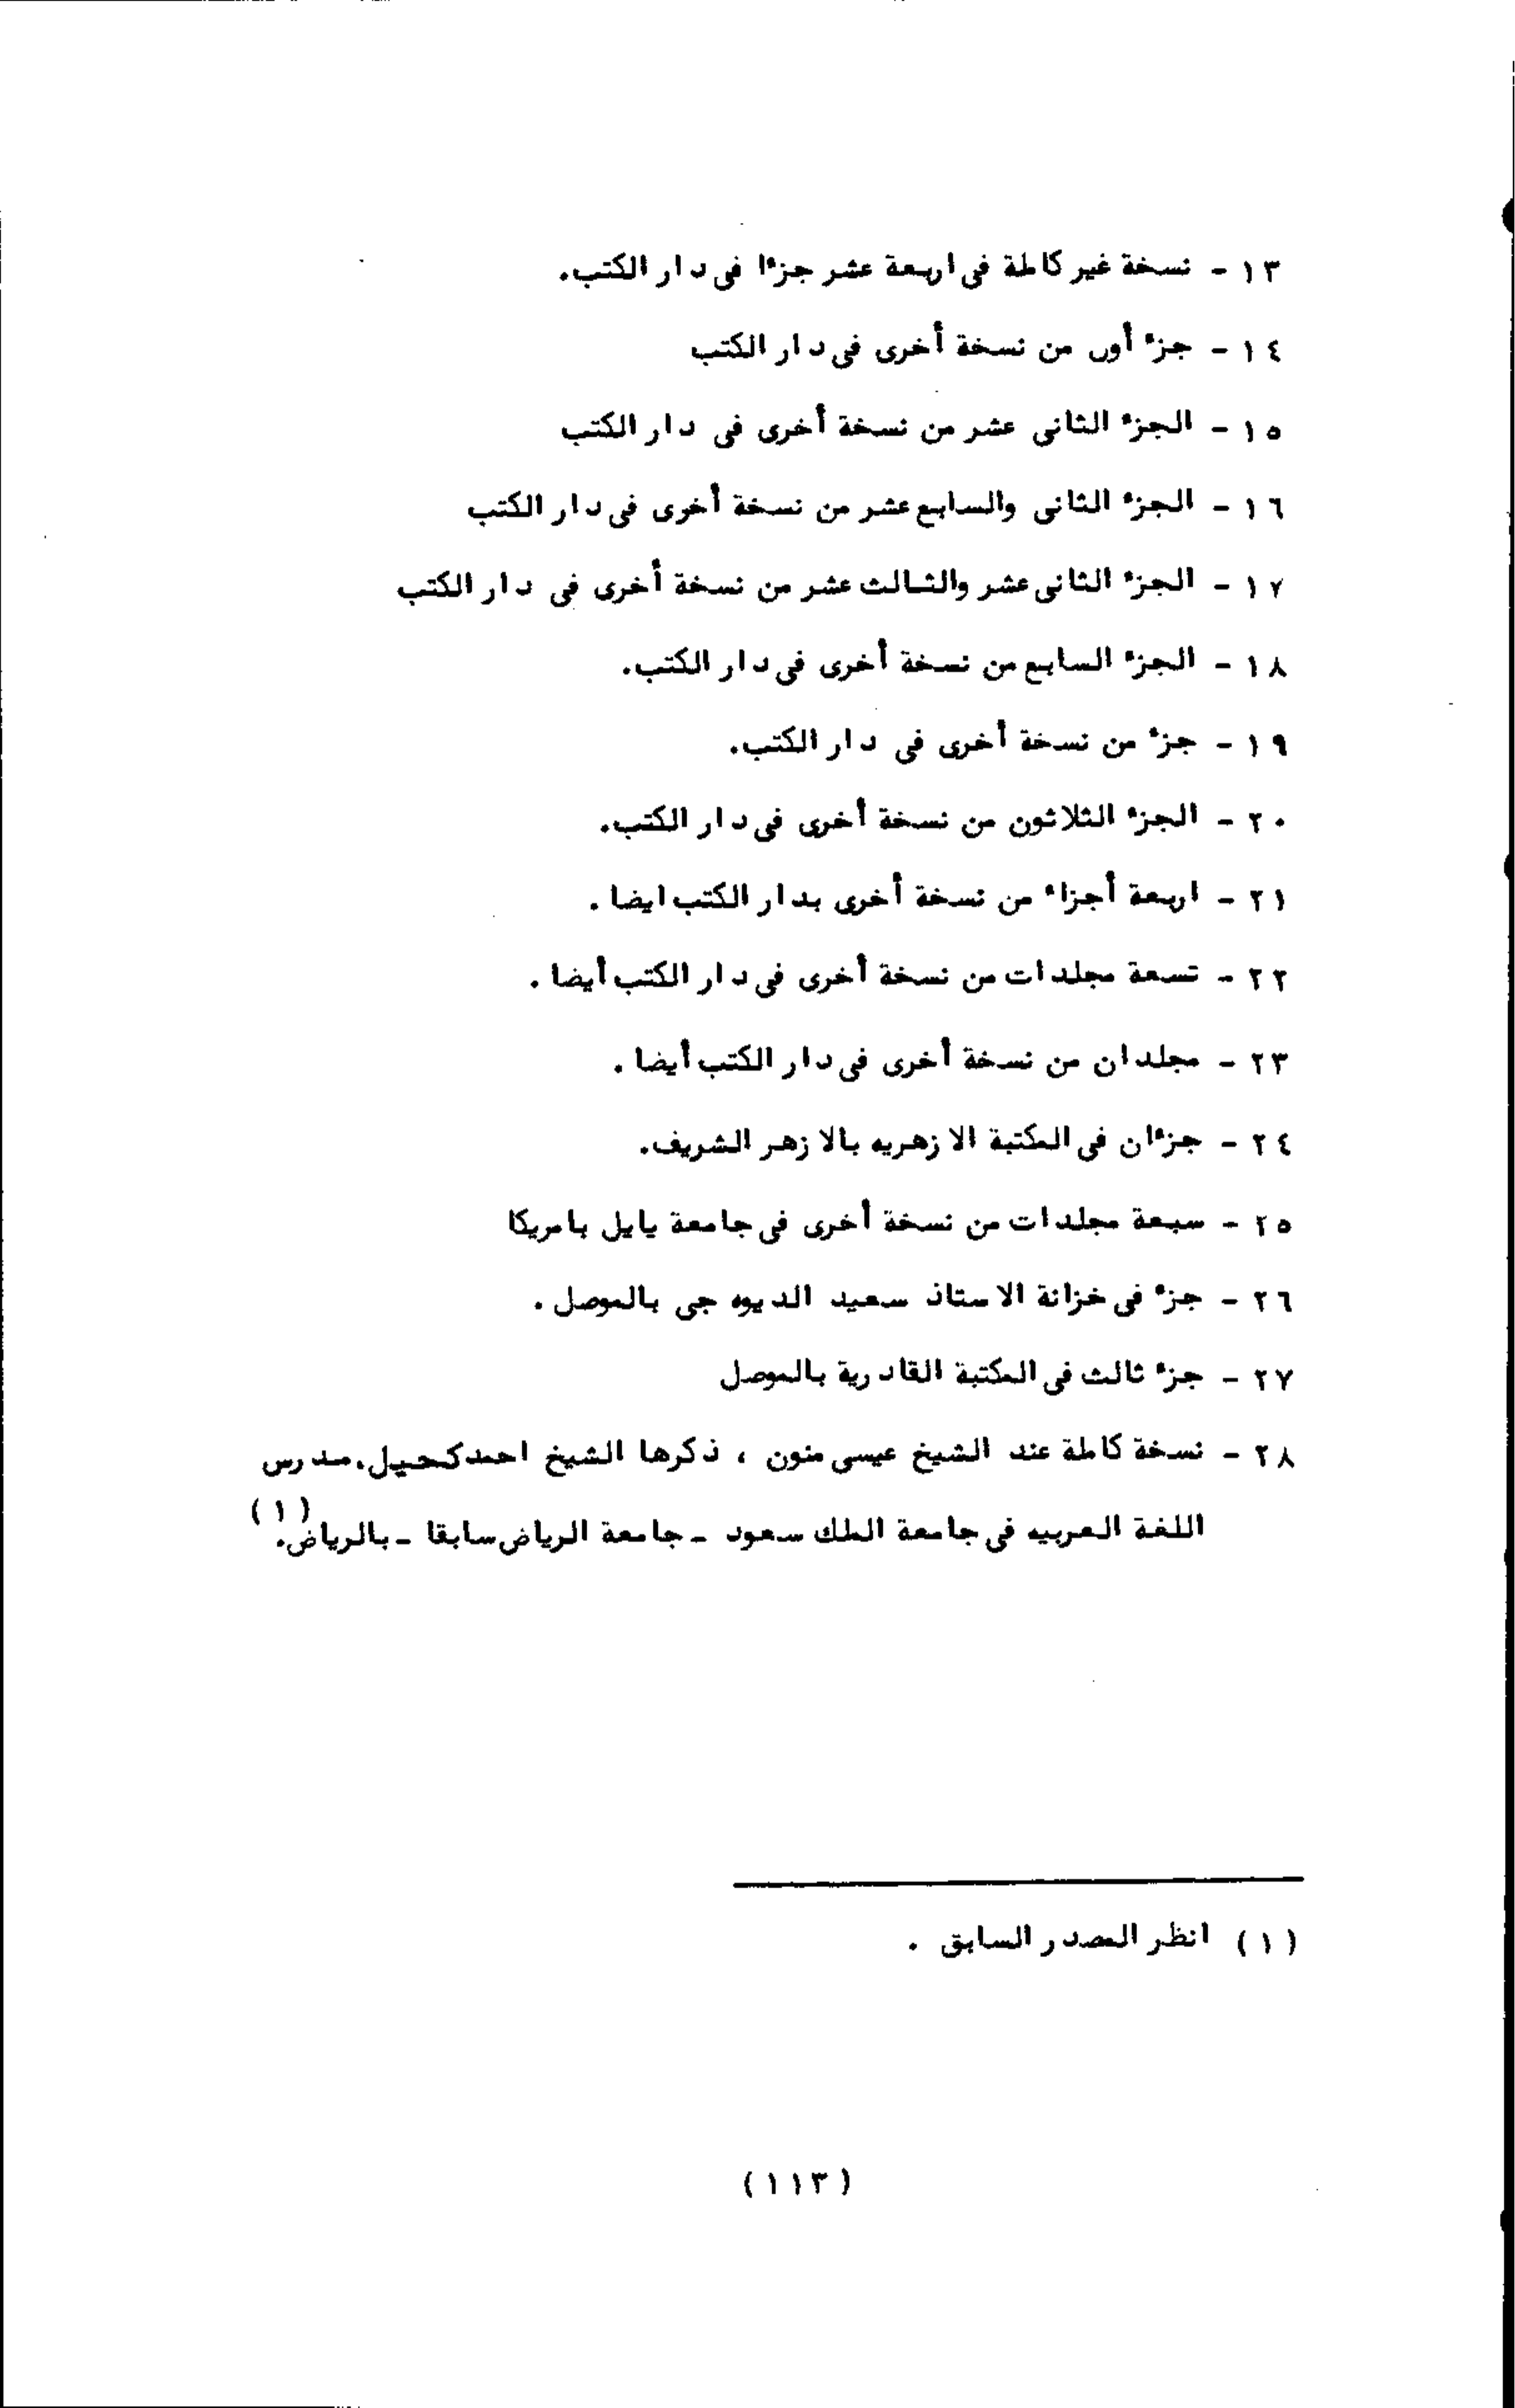 ١٣ - نسخة غير كاملة فى اربعة عشر جزءا فى دار الكتب.
١٤ - جزء أور من نسخة أخرى فى دار الكتب
١٥ - الجزء الثانى عشر من نسخة أخرى فى دار الكتب
١٦ - الجزء الثانى والسابع عشر من نسخة أخرى فى دار الكتب
١٧ - الجزء الثانى عشر والثالث عشر من نسخة أخرى فى دار الكتب
١٨ - الجزء السابع من نسخة أخرى فى دار الكتب.
١٩ - جزء من نسخة أخرى فى دار الكتب.
٢٠ - الجزء الثلاثون من نسخة أخرى فى دار الكتب.
٢١ - اربعة أجزاء من نسخة أخرى بدار الكتب ايضا .
٢٢ - تسعة مجلدات من نسخة أخرى فى دار الكتب أيضا .
٢٣ - مجلدان من نسخة أخرى فى دار الكتب أيضا .
٢٤ - جزءان فى المكتبة الازهريه بالازهر الشريف.
٢٥ - سبعة مجلدات من نسخة أخرى فى جامعة يايل بامريكا
٢٦ - جزء فى خزانة الاستاذ سعيد الديوه جى بالموصل .
٢٧ - جزء ثالث فى المكتبة القادرية بالموصل
٢٨ - نسخة كاملة عند الشيخ عيسى منون ، ذكرها الشيخ احمد كحيل. مدرس
اللغة العربيه فى جامعة الملك سعود - جامعة الرياض سابقا - بالرياض. (١)
(١) انظر المصدر السابق .
(١١٣)